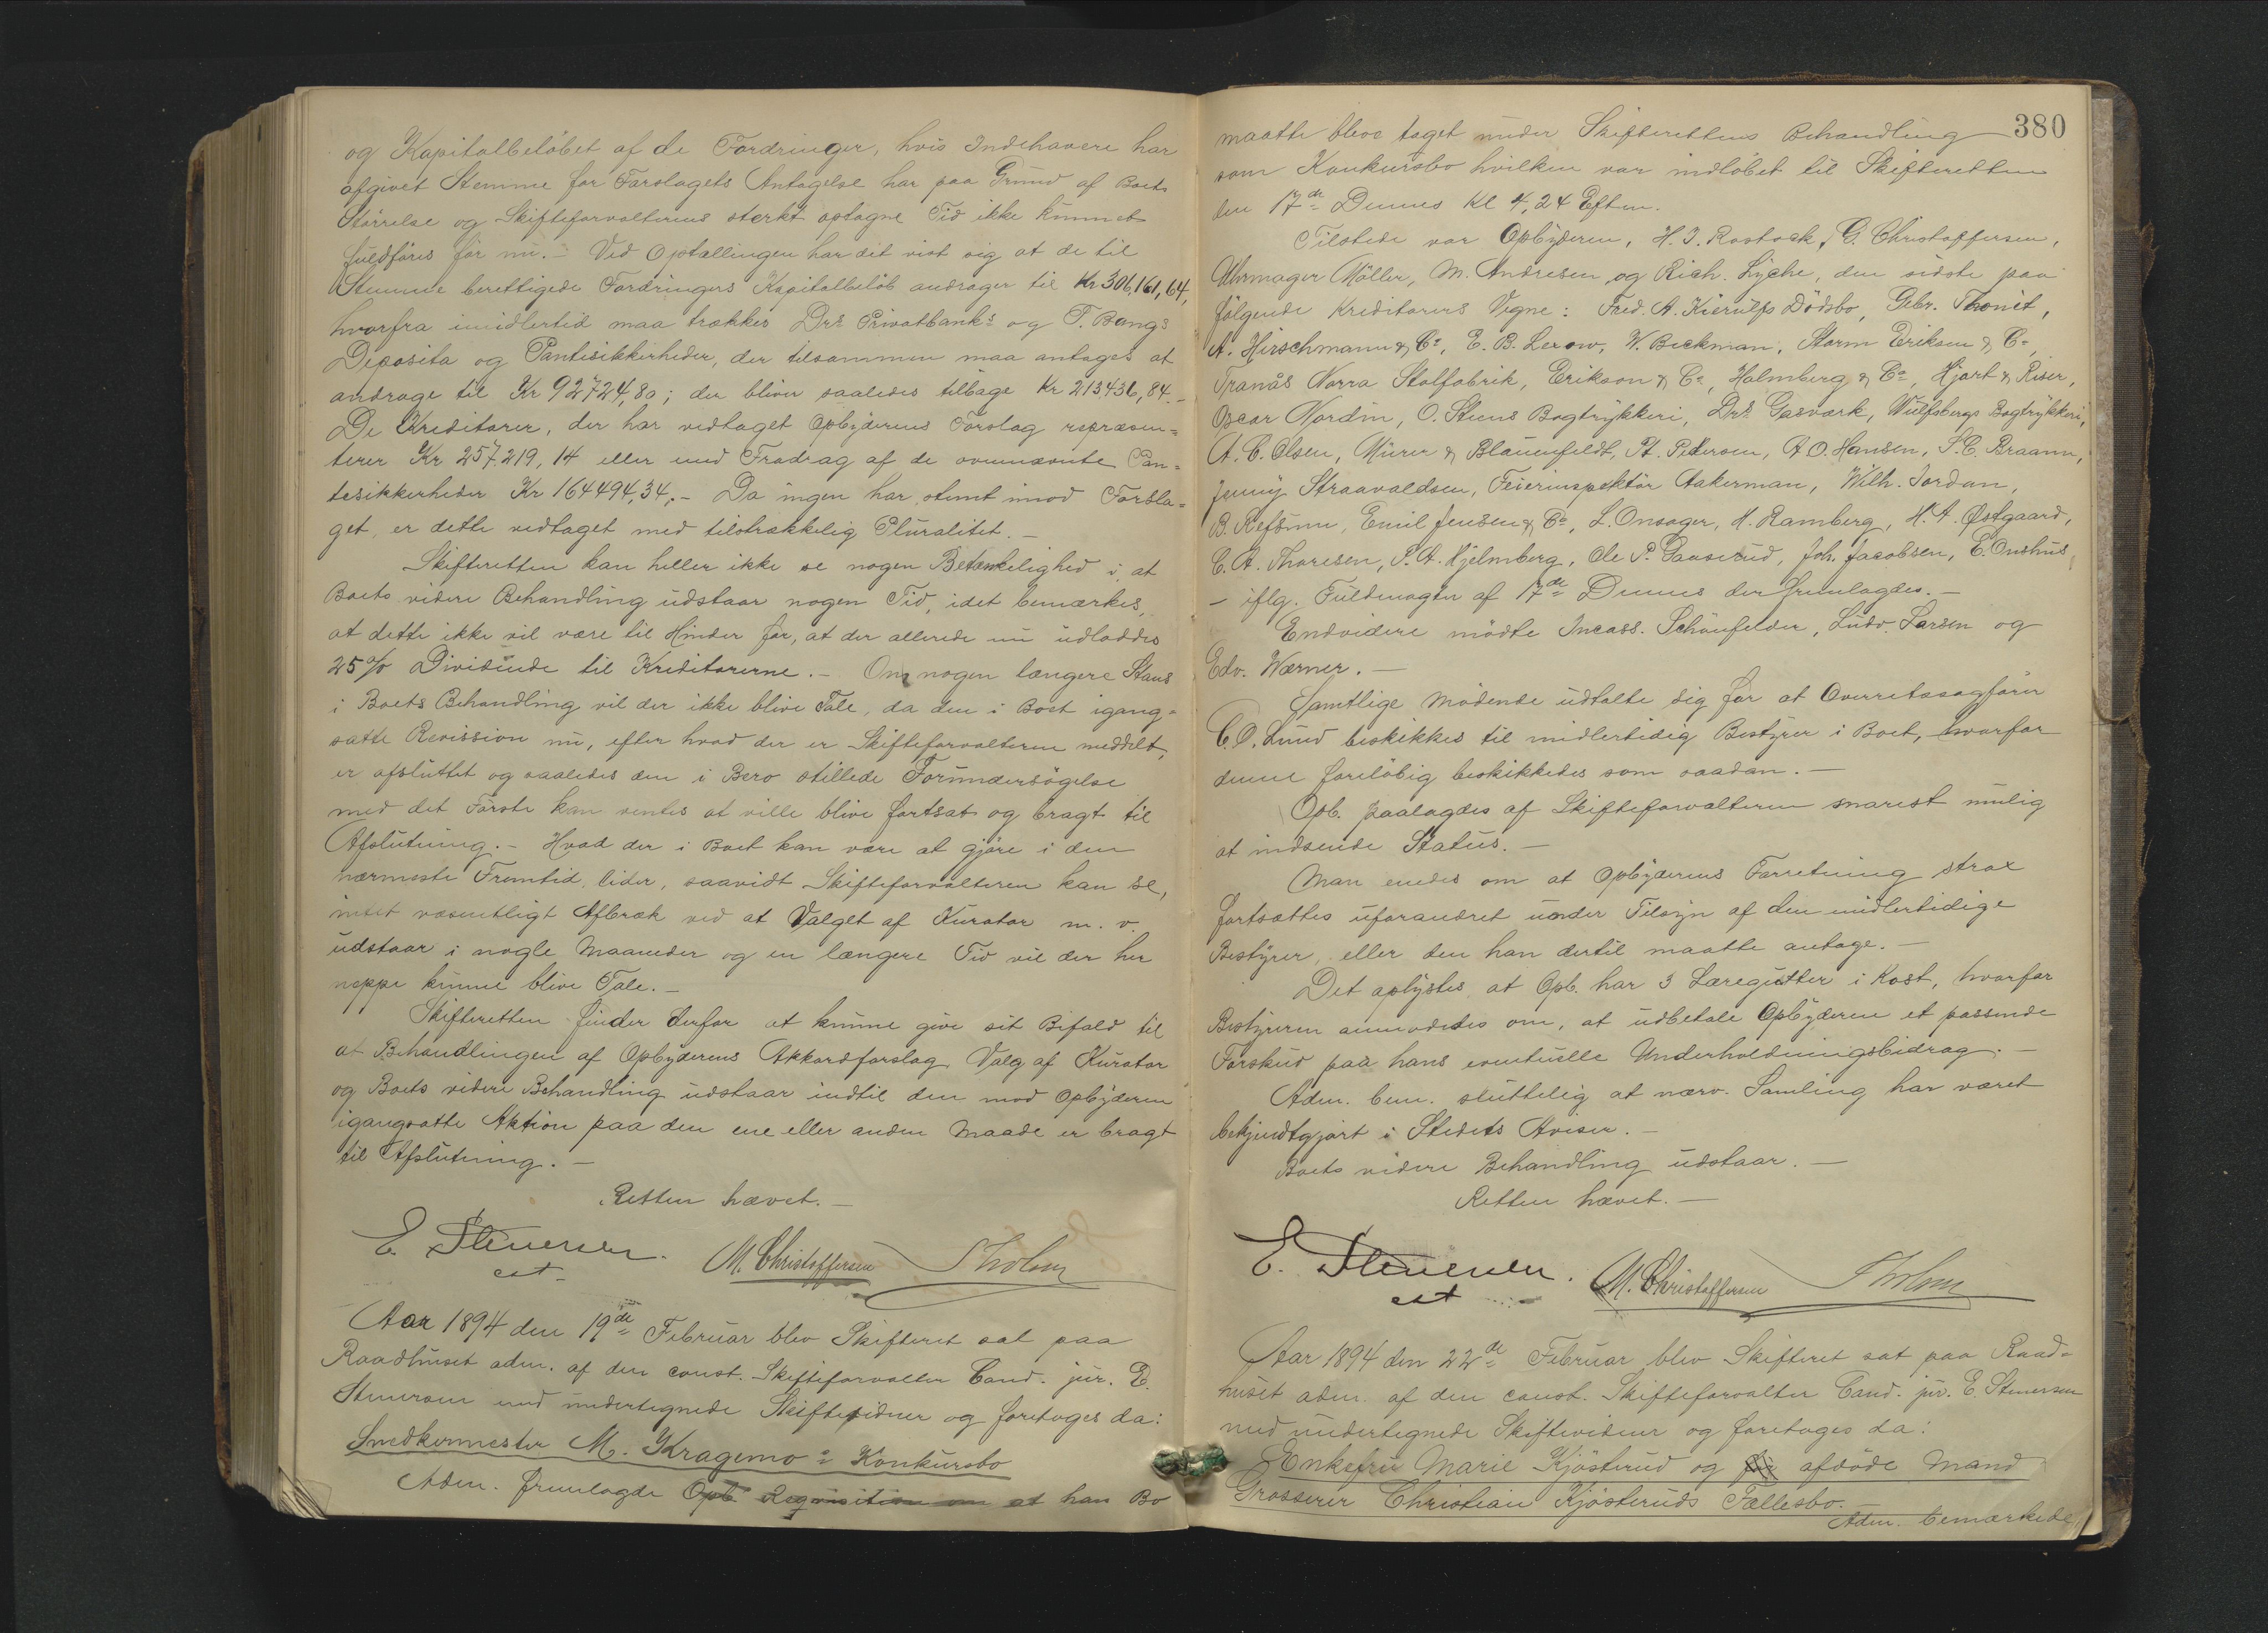 og Kapitalbeløbet af de Fordringer, hvis Indehavere har
afgivet Stemme for Forslagets Antagelse har paa Grund af Boets
Størrelse og Skifteforvalterens sterkt optagne Tid ikke kunnet
fuldføres før nu. – Ved Optællingen har det vist sig at de til
Stemme berettigede Fordringers Kapitalbeløb andrager til Kr 306,161,64,
hvorfra imidlertid maa trækkes Drs Privatbanks og T. Bangs
Deposita og Pantesikkerheder, der tilsammen maa antages at
andrage til Kr 92724,80; der bliver saaledes tilbage Kr 213436,84. –
De Kreditorer, der har vedtaget Opbyderens Forslag repræsen=
terer Kr 257.219,14 eller med Fradrag af de ovennævnte Pan=
tesikkerheder Kr 164494,34. – Da ingen har stemt imod Forsla=
get, er dette vedtaget med tilstrækkelig Pluralitet. –
Skifteretten kan heller ikke se nogen Betænkelighed i, at
Boets videre Behandling udstaar nogen Tid, idet bemærkes,
at dette ikke vil være til Hinder for, at der allerede nu udloddes
25 % Dividende til Kreditorerne. – Om nogen længere Stans
i Boets Behandling vil der ikke blive Tale, da den i Boet igang=
satte Revission nu, efter hvad der er Skifteforvalteren meddelt,
er afsluttet og saaledes den i Bero stillede Forundersøgelse
med det Første kan ventes at ville blive fortsat og bragt til
Afslutning. – Hvad der i Boet kan være at gjøre i den
nærmeste Fremtid lider, saavidt Skifteforvalteren kan se,
intet væsentligt Afbræk ved at Valget af Kurator m. v.
udstaar i nogle Maaneder og en længere Tid vil der her
neppe kunne blive Tale. –
Skifteretten finder derfor at kunne give sit Bifald til
at Behandlingen af Opbyderens Akkordforslag Valg af Kurator
og Boets videre Behandling udstaar indtil den mod Opbyderen
igangsatte Aktion paa den ene eller anden Maade er bragt
til Afslutning. –
Retten hævet. –
E. Stenersen.
cst
M. Christoffersen
S Holm
Aar 1894 den 19de Februar blev Skifteret sat paa
Raadhuset adm. af den const. Skifteforvalter Cand. jur. E.
Stenersen med undertegnede Skiftevidner og foretoges da:
Snedkermester M. Kragemo's Konkursbo
Adm. fremlagde Opb. Requisition om at hans Bo
380
maatte blive taget under Skifterettens Behandling
som Konkursbo hvilken var indløbet til Skifteretten
den 17de Dennes Kl 4,24 Eftm.
Tilstede var Opbyderen, H. J. Rostock, G. Christoffersen,
Uhrmager Møller, M. Andresen og Rich. Lyche, den sidste paa
følgende Kreditorers Vegne: Fred. A. Kierulfs Dødsbo, Gebr. Thonet,
A. Hirschmann & Co, E. B. Lerow, W. Beckman, Storm Eriksen & Co,
Tranås Norra Stolfabrik, Erikson & Co, Holmberg & Co, Hjort & Riser,
Oscar Nordin, O. Steens Bogtrykkeri, Drs Gasværk, Wulfsbergs Bogtrykkeri,
A. C. Olsen, Mürer & Blauenfeldt, Pt. Pedersen, A O. Hansen, S. C. Braann,
Jenny Straavaldsen, Feierinspektør Aakerman, Wilh. Jordan,
B. Refsum, Emil Jensen & Co, L. Onsager, H. Ramberg, H. A. Østgaard,
C. A. Thoresen, P. A. Hjelmberg, Ole P. Gaaserud, Joh. Jacobsen, E. Onshus
– iflg. Fuldmagter af 17de Dennes der fremlagdes. –
Endvidere mødte Incass. Schønfelder, Ludv. Larsen og
Edv. Wærner. –
Samtlige Mødende udtalte sig for at Overretssagfører
C. O. Lund beskikkes til midlertidig Bestyrer i Boet, hvorfor
denne foreløbig beskikkedes som saadan. –
Opb. paalagdes af Skifteforvalteren snarest mulig
at indsende Status. –
Man enedes om at Opbyderens Forretning strax
fortsættes uforandret under Tilsyn af den midlertidige
Bestyrer, eller den han dertil maatte antage. –
Det oplystes at Opb. har 3 Læregutter i Kost, hvorfor
Bestyreren anmodedes om, at udbetale Opbyderen et passende
Forskud paa hans eventuelle Underholdningsbidrag. –
Adm. bem. sluttelig at nærv. Samling har været
bekjendtgjort i Stedets Aviser. –
Boets videre Behandling udstaar. –
Retten hævet. –
E. Stenersen.
cst
M. Christoffersen
S Holm
Aar 1894 den 22de Februar blev Skifteret sat paa Raad=
huset adm. af den const. Skifteforvalter Cand. jur. E. Stenersen
med undertegnede Skiftevidner og foretoges da:
Enkefru Marie Kjøsterud og afdøde Mand
Grosserer Christian Kjøsteruds Fællesbo.
Adm. bemærkede